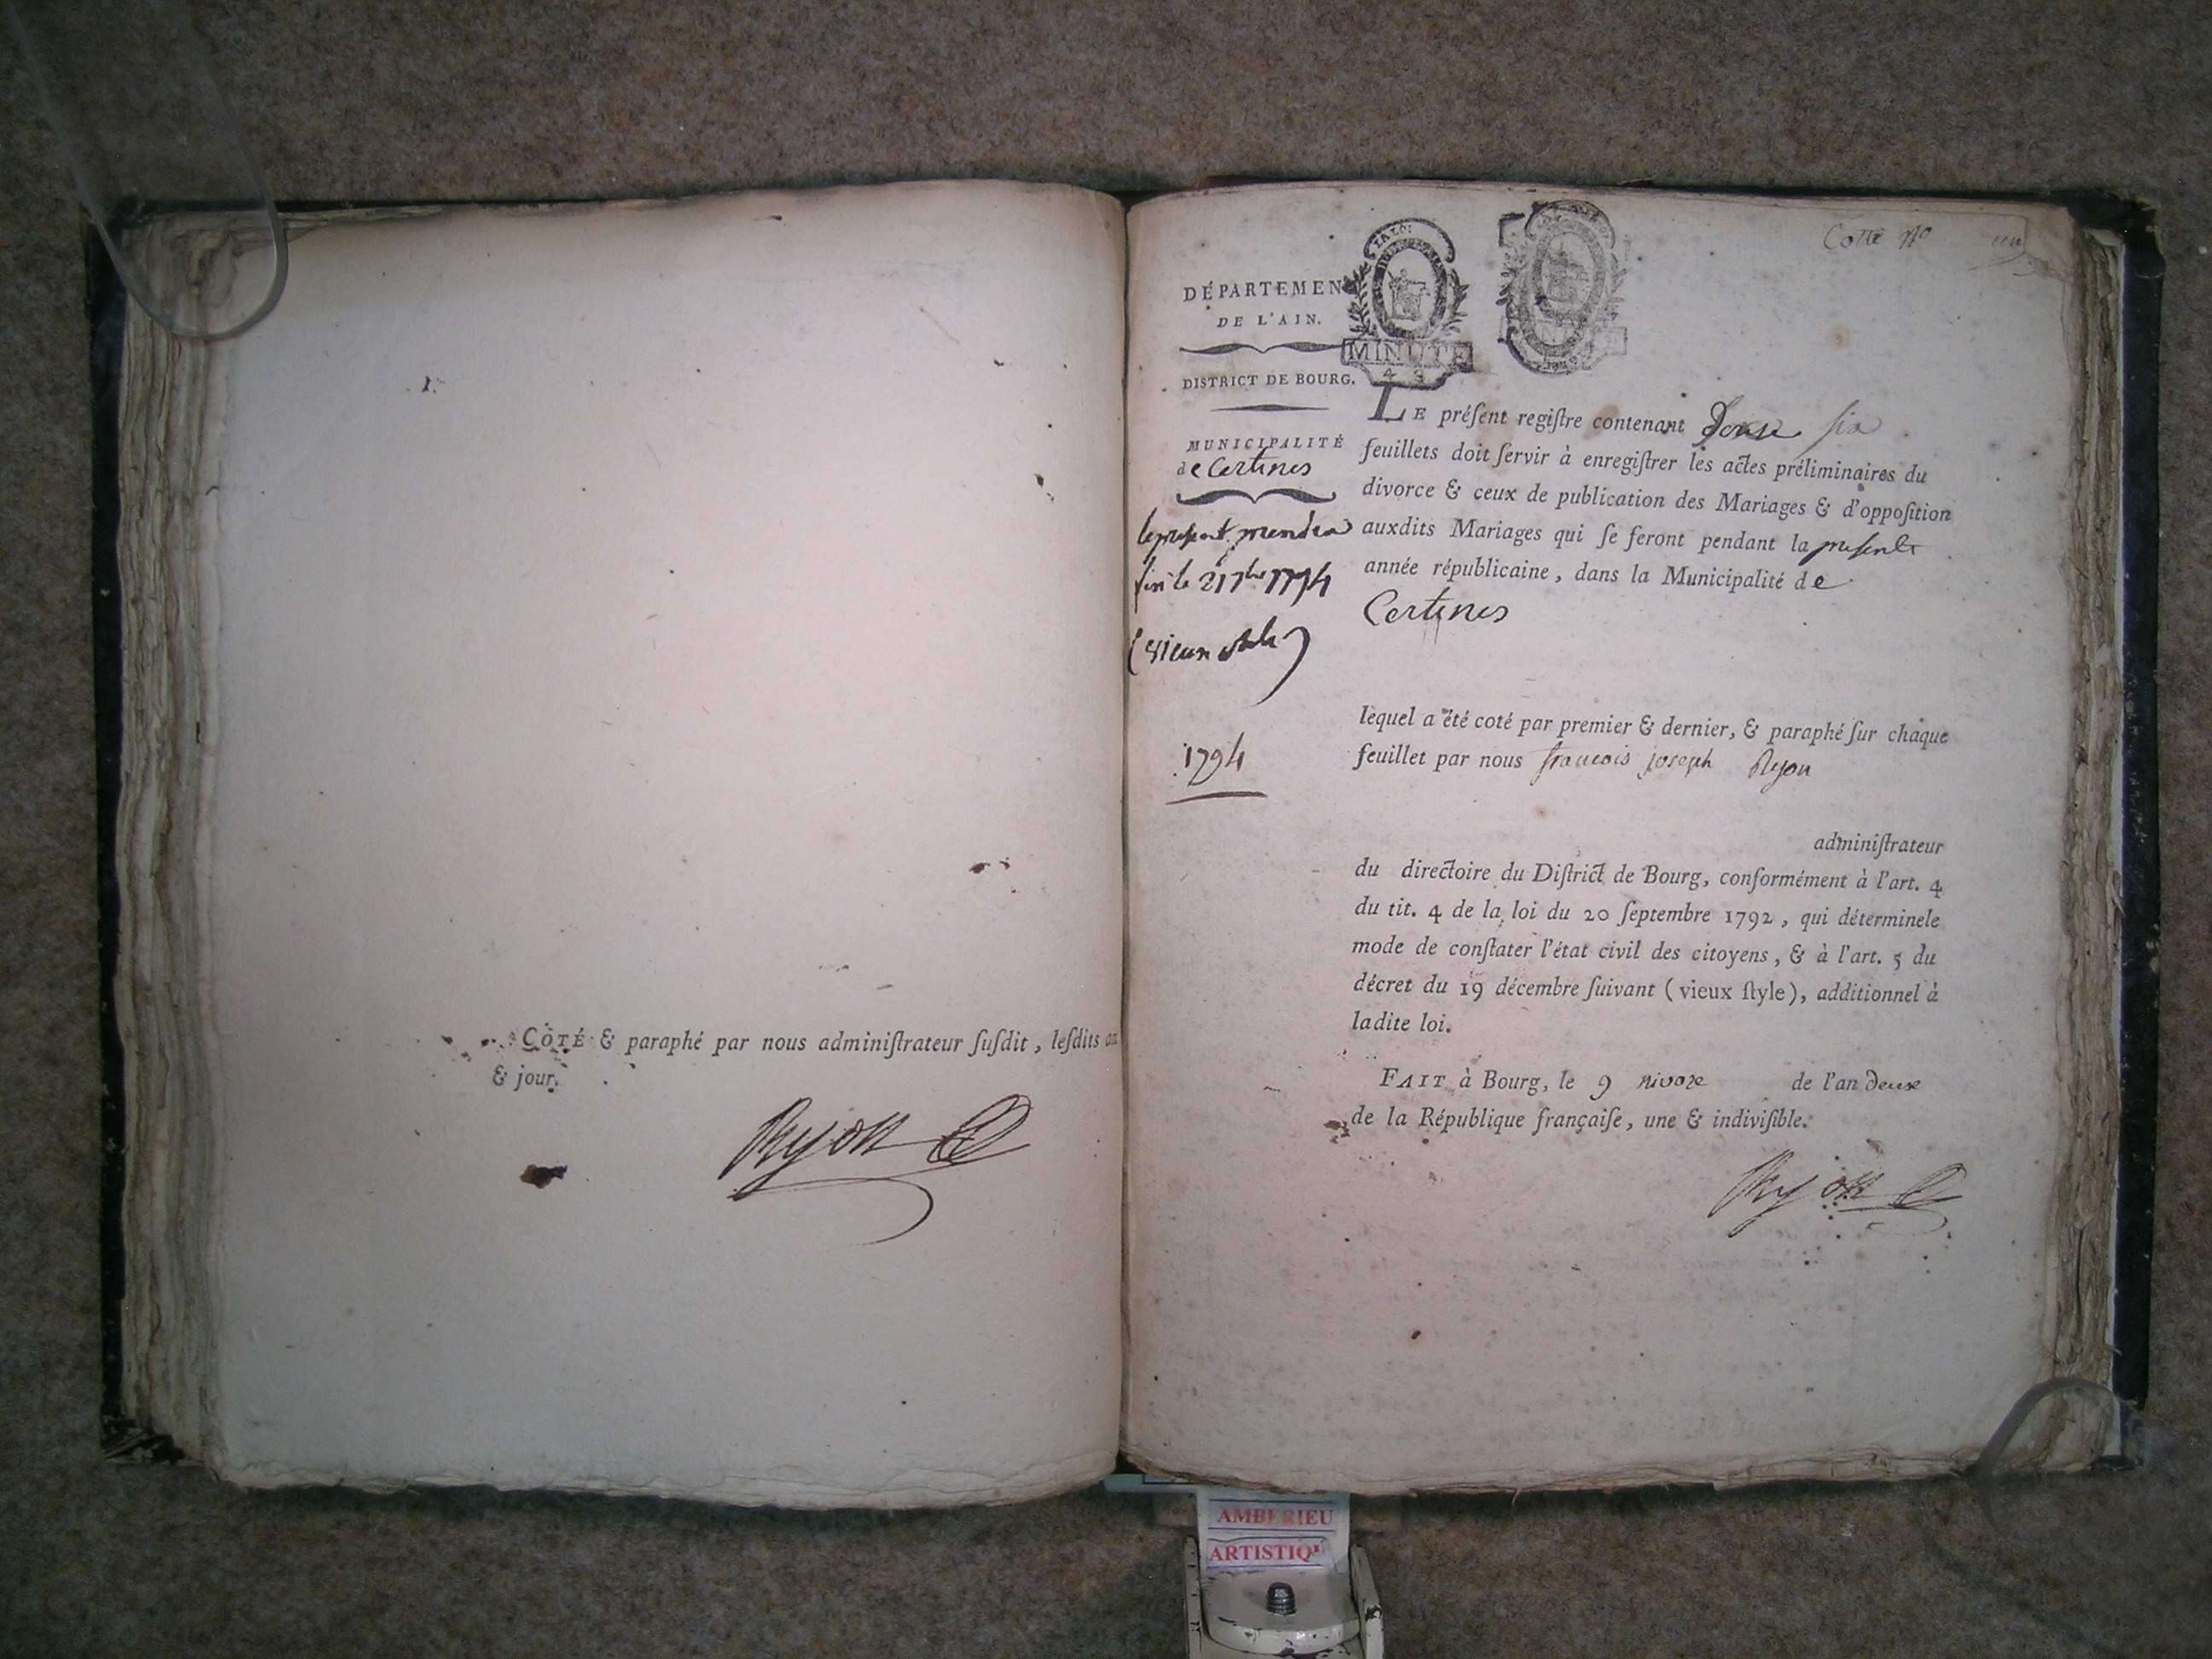 CÔTÉ & paraphé par nous administrateur susdit, lesdits an
& jour.
Ryon
Cotte No
LA LOI
MINUTE
4 S
DÉPARTEMEN
DE L'AIN.
DISTRICT DE BOURG.
MUNICIPALITÉ
de Certines
le present prendra
fin le 21 7bre 1794
(vieux stile)
1794
LE préſent regiſtre contenant six
feuillets doit ſervir à enregiſtrer les actes préliminaires du
divorce & ceux de publication des Mariages & d'oppoſition
auxdits Mariages qui ſe feront pendant la presente
année républicaine, dans la Municipalité de
Certines
lequel a été coté par premier & dernier, & paraphé ſur chaque
feuillet par nous francois joseph Ryon
adminiſtrateur
du directoire du Diſtrict de Bourg, conformément à l'art. 4
du tit. 4 de la loi du 20 ſeptembre 1792, qui déterminele
mode de conſtater l'état civil des citoyens, & à l'art. 5 du
décret du 19 décembre ſuivant (vieux ſtyle), additionnel à
ladite loi.
FAIT à Bourg, le 9 nivose de l'an deux
de la République françaiſe, une & indiviſible.
Ryon
AMBERIEU
ARTISTIQ